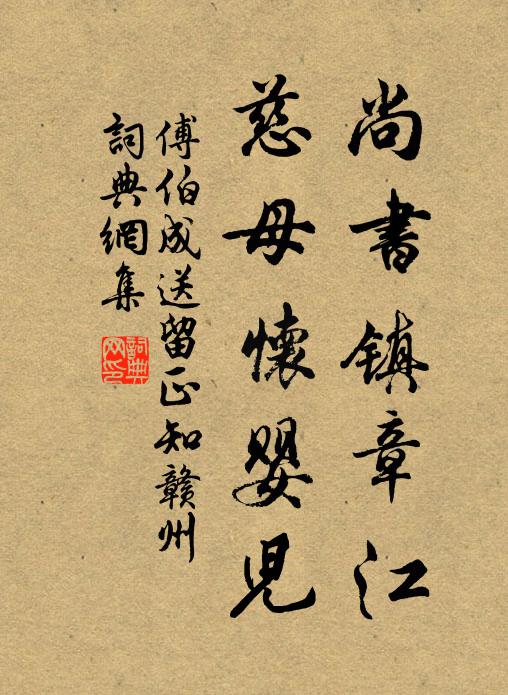 尚書鎮章江
慈母懷嬰兒
傅伯成送留正知贛州
詞典網集
詞典网印